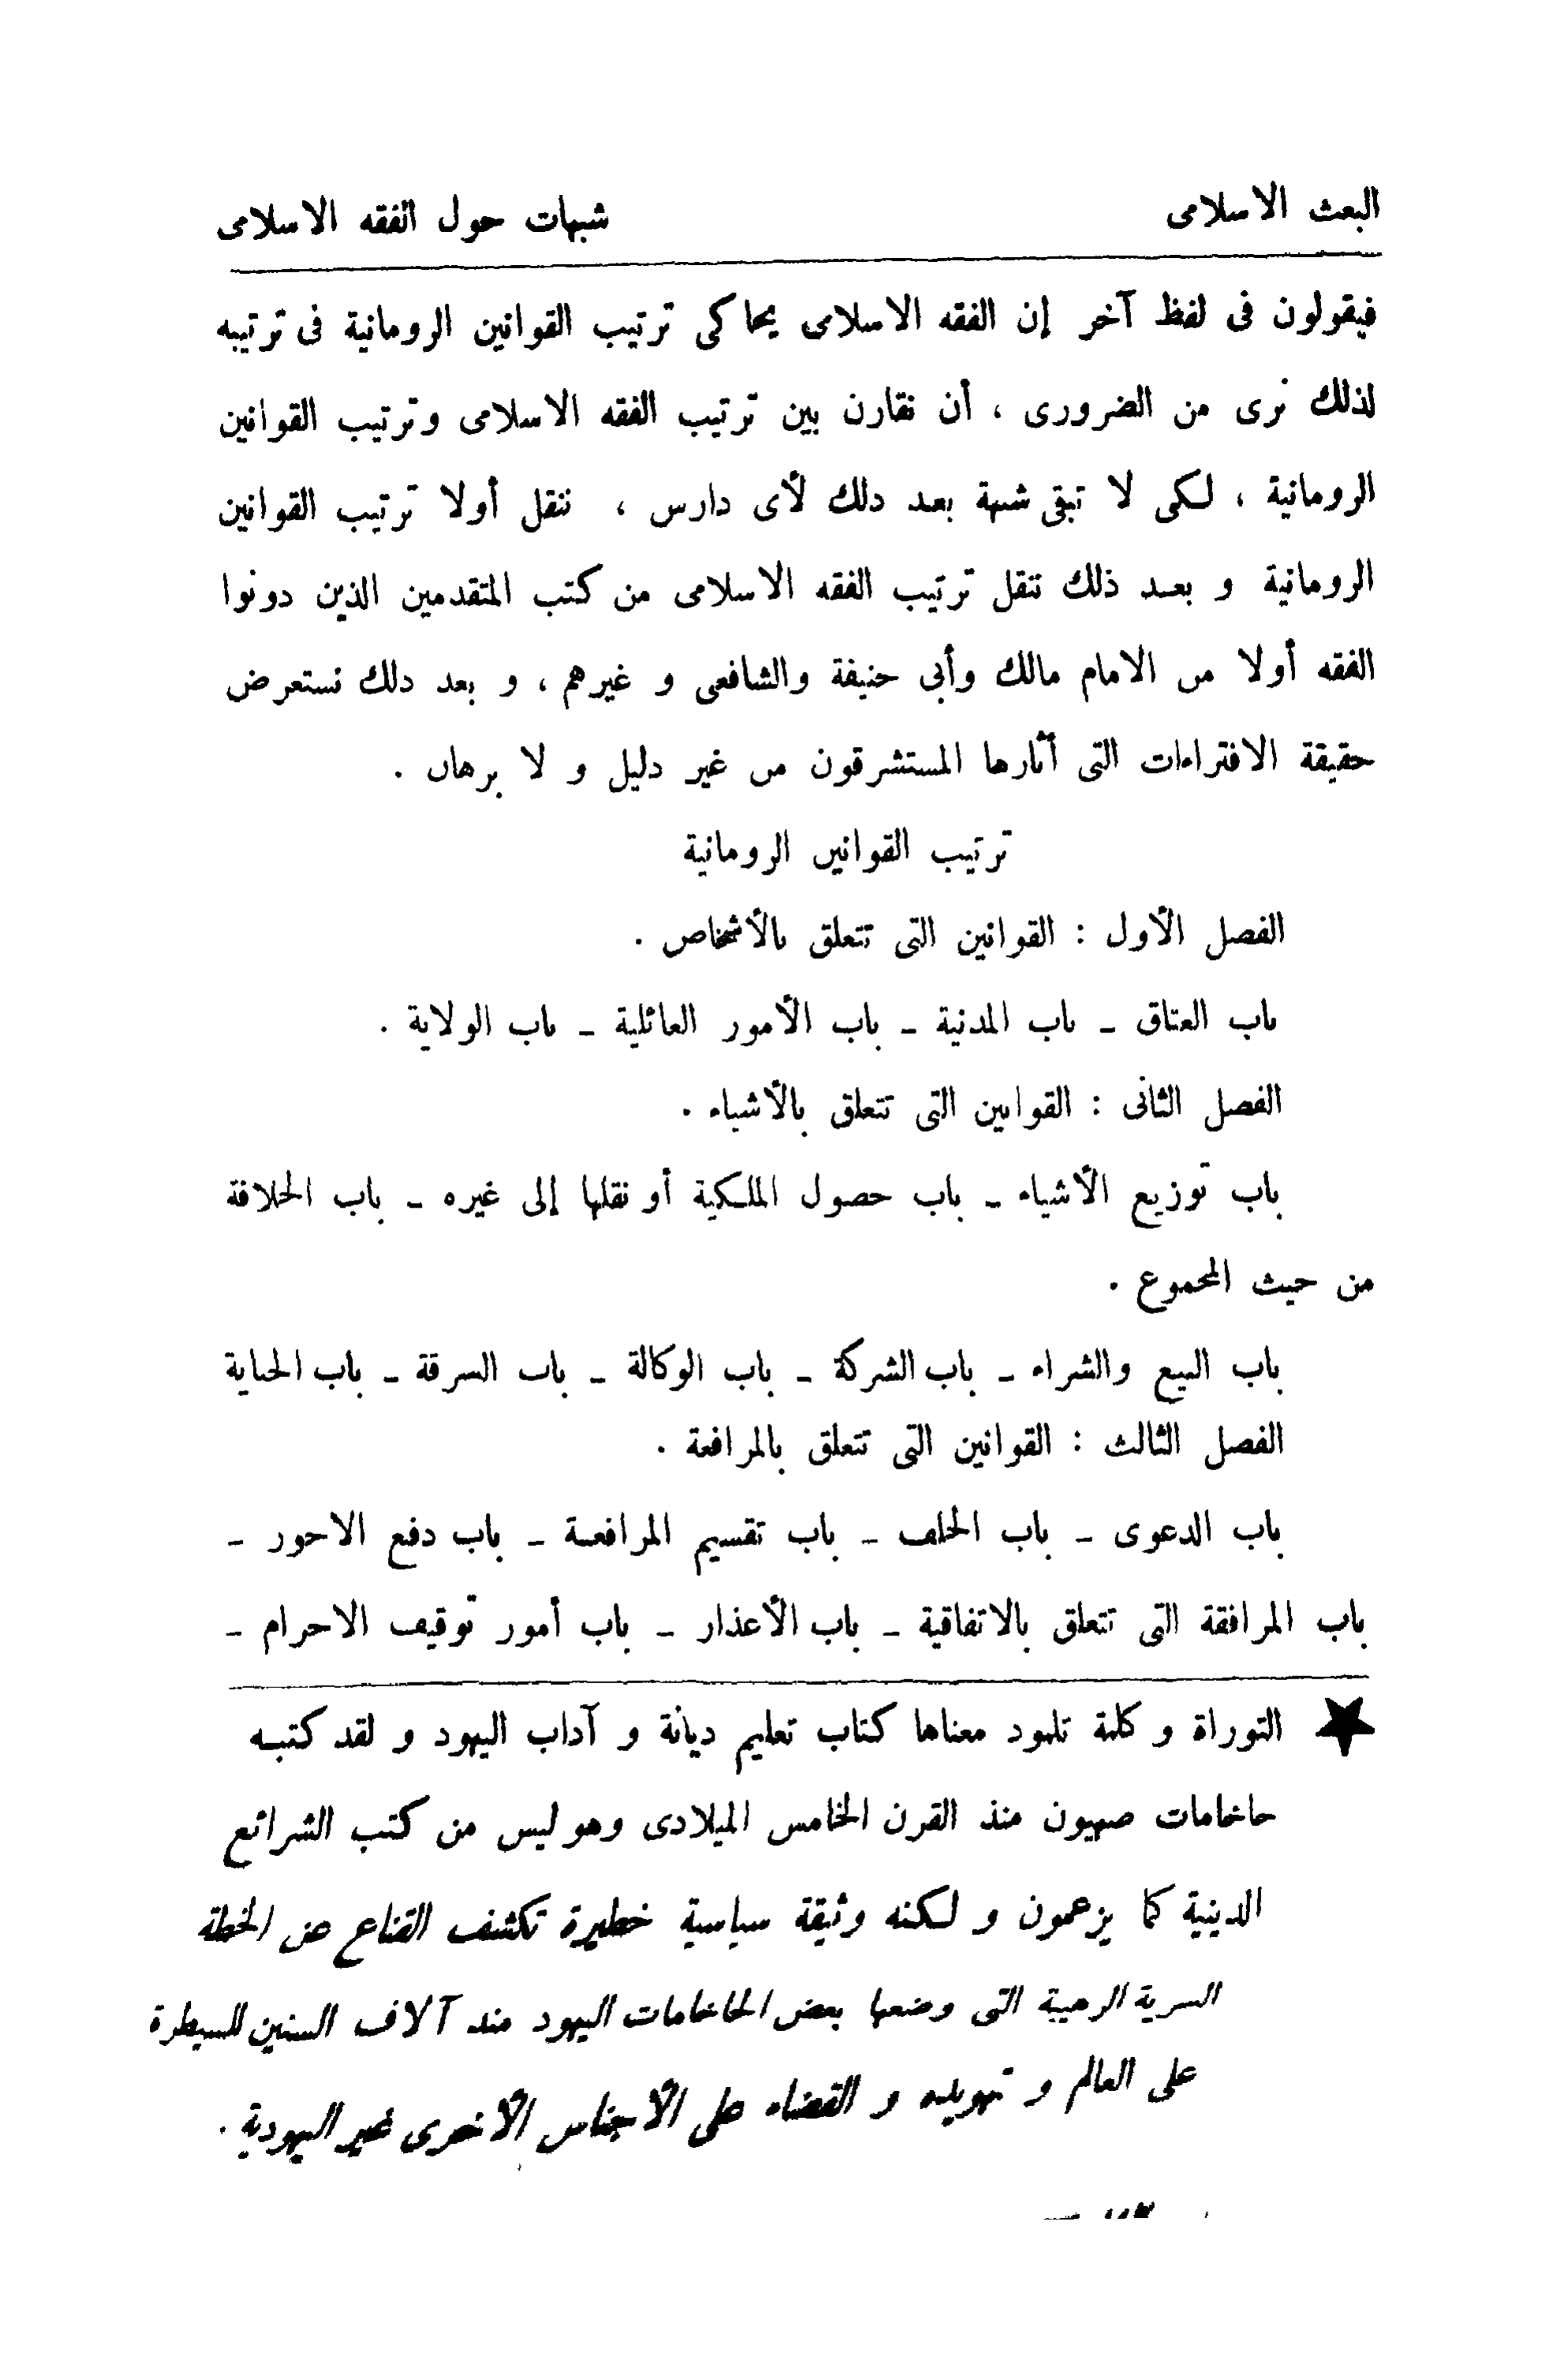 البعث الاسلامى شبهات حول الفقه الاسلامى
فيقولون فى لفظ آخر إن الفقه الاسلامى يحاكى ترتيب القوانين الرومانية فى ترتيبه
لذلك نرى من الضرورى ، أن نقارن بين ترتيب الفقه الاسلامى وترتيب القوانين
الرومانية ، لكى لا تبقى شبهة بعد دلك لأى دارس ، ننقل أولا ترتيب القوانين
الرومانية و بعد ذلك ننقل ترتيب الفقه الاسلامى من كتب المتقدمين الذين دونوا
الفقه أولا من الامام مالك وأبى حنيفة والشافعى و غيرهم ، و بعد دلك نستعرض
حقيقة الافتراءات التى أثارها المستشرقون من غير دليل و لا برهان .
ترتيب القوانين الرومانية
الفصل الأول : القوانين التى تتعلق بالأشخاص .
باب العتاق ـ باب المدنية ـ باب الأمور العائلية ـ باب الولاية .
الفصل الثانى : القوانين التى تتعلق بالأشياء .
باب توزيع الأشياء ـ باب حصول الملكية أو نقلها إلى غيره ـ باب الخلافة
من حيث المجموع .
باب البيع والشراء ـ باب الشركة ـ باب الوكالة ـ باب السرقة ـ باب الجناية
الفصل الثالث : القوانين التى تتعلق بالمرافعة .
باب الدعوى ـ باب الحلف ـ باب تقسيم المرافعة ـ باب دفع الاجور ـ
باب المرافقة التى تتعلق بالاتفاقية ـ باب الأعذار ـ باب أمور توقيف الاحرام ـ
★ التوراة و كلمة تلمود معناها كتاب تعليم ديانة و آداب اليهود و لقد كتبه
حاخامات صهيون منذ القرن الخامس الميلادى وهو ليس من كتب الشرائع
الدينية كما يزعمون و لكنه وثيقة سياسية خطيرة تكشف القناع عن الخطة
السرية الرهيبة التى وضعها بعض الحاخامات اليهود منذ آلاف السنين للسيطرة
على العالم و تهويده و القضاء على الأجناس الأخرى غير اليهودية .